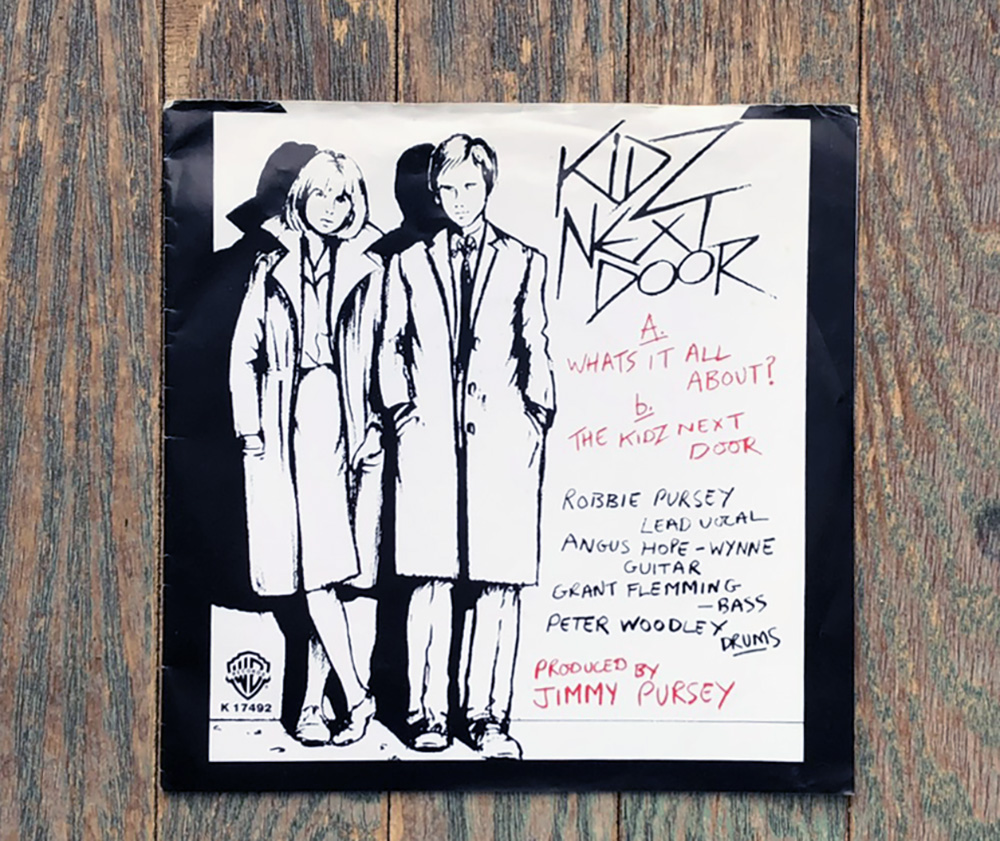 KIDZ
NEXT
DOOR
A.
WHATS IT ALL
ABOUT?
b.
THE KIDZ NEXT
DOOR
ROBBIE PURSEY
LEAD VOCAL
ANGUS HOPE-WYNNE
GUITAR
GRANT FLEMMING
-BASS
PETER WOODLEY
DRUMS
PRODUCED BY
JIMMY PURSEY
RECORDS
K 17492